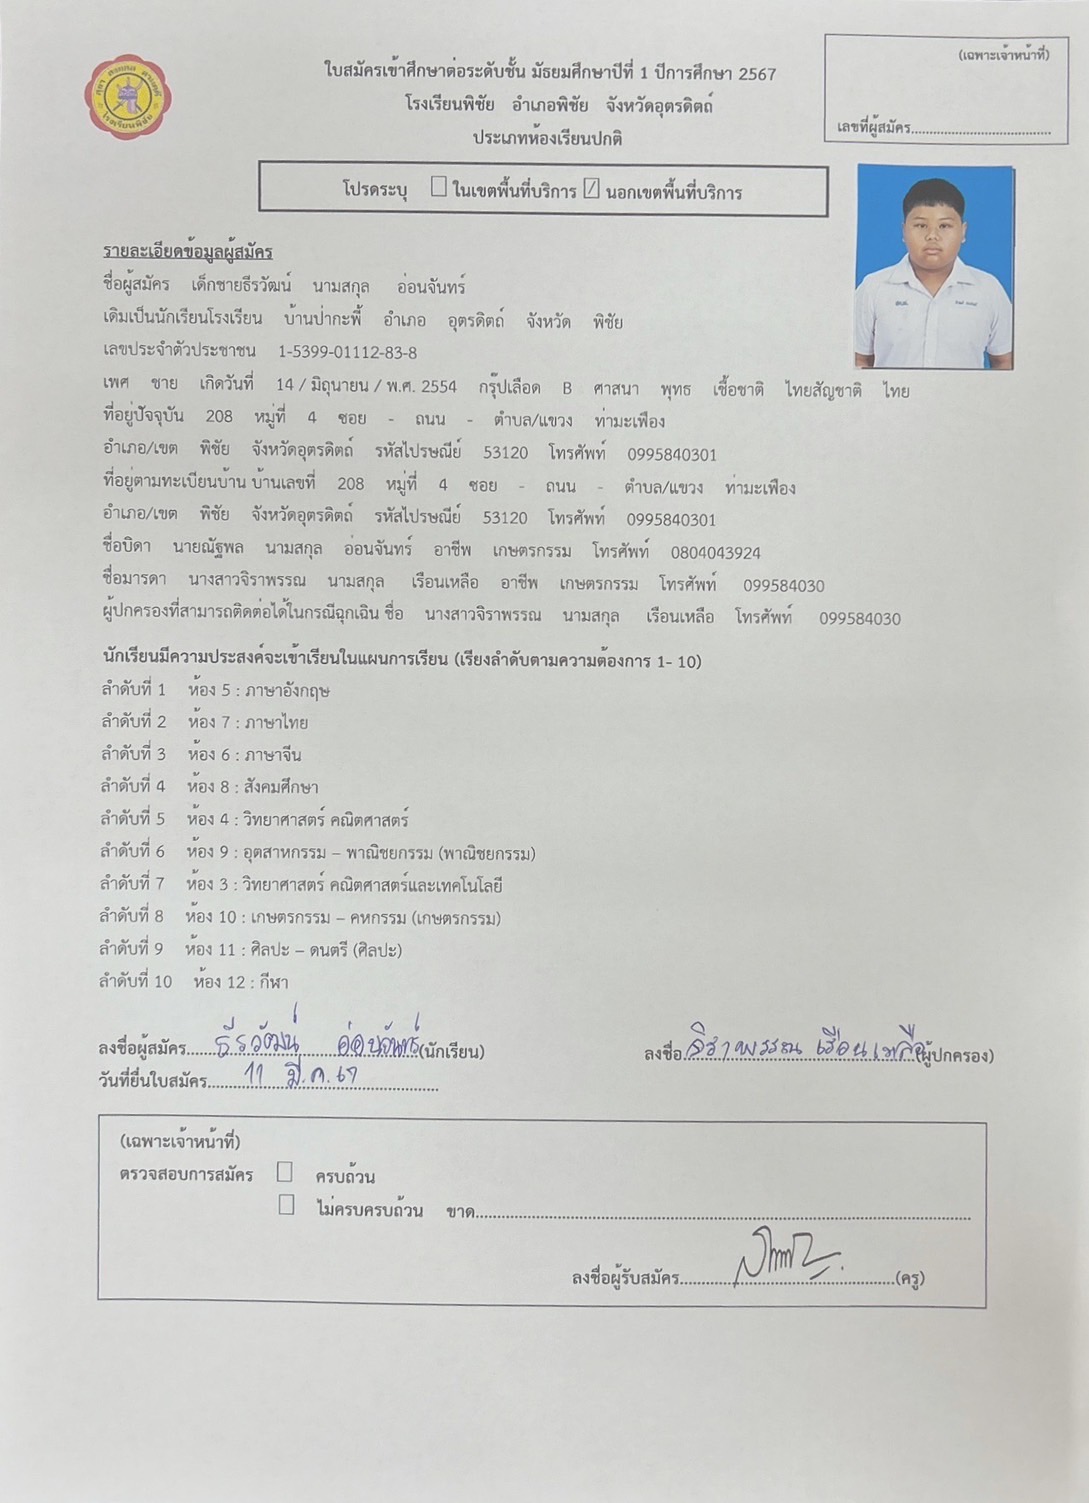 (เฉพาะเจ้าหน้าที่)
ใบสมัครเข้าศึกษาต่อระดับชั้น มัธยมศึกษาปีที่ 1 ปีการศึกษา 2567
โรงเรียนพิชัย อำเภอพิชัย จังหวัดอุตรดิตถ์
เลขที่ผู้สมัคร
ประเภทห้องเรียนปกติ
โรงเรียนพิชัย
โปรดระบุ ในเขตพื้นที่บริการ / นอกเขตพื้นที่บริการ
รายละเอียดข้อมูลผู้สมัคร
ชื่อผู้สมัคร เด็กชายธีรวัฒน์ นามสกุล อ่อนจันทร์
เดิมเป็นนักเรียนโรงเรียน บ้านป่ากะพี้ อำเภอ อุตรดิตถ์ จังหวัด พิชัย
เลขประจำตัวประชาชน 1-5399-01112-83-8
เพศ ชาย เกิดวันที่ 14 / มิถุนายน / พ.ศ. 2554 กรุ๊ปเลือด B ศาสนา พุทธ เชื้อชาติ ไทยสัญชาติ ไทย
ที่อยู่ปัจจุบัน 208 หมู่ที่ 4 ซอย - ถนน - ตำบล/แขวง ท่ามะเฟือง
อำเภอ/เขต พิชัย จังหวัดอุตรดิตถ์ รหัสไปรษณีย์ 53120 โทรศัพท์ 0995840301
ที่อยู่ตามทะเบียนบ้าน บ้านเลขที่ 208 หมู่ที่ 4 ซอย - ถนน - ตำบล/แขวง ท่ามะเฟือง
อำเภอ/เขต พิชัย จังหวัดอุตรดิตถ์ รหัสไปรษณีย์ 53120 โทรศัพท์ 0995840301
ชื่อบิดา นายณัฐพล นามสกุล อ่อนจันทร์ อาชีพ เกษตรกรรม โทรศัพท์ 0804043924
ชื่อมารดา นางสาวจิราพรรณ นามสกุล เรือนเหลือ อาชีพ เกษตรกรรม โทรศัพท์ 099584030
ผู้ปกครองที่สามารถติดต่อได้ในกรณีฉุกเฉิน ชื่อ นางสาวจิราพรรณ นามสกุล เรือนเหลือ โทรศัพท์ 099584030
นักเรียนมีความประสงค์จะเข้าเรียนในแผนการเรียน (เรียงลำดับตามความต้องการ 1- 10)
ลำดับที่ 1 ห้อง 5 : ภาษาอังกฤษ
ลำดับที่ 2 ห้อง 7 : ภาษาไทย
ลำดับที่ 3 ห้อง 6 : ภาษาจีน
ลำดับที่ 4 ห้อง 8 : สังคมศึกษา
ลำดับที่ 5 ห้อง 4 : วิทยาศาสตร์ คณิตศาสตร์
ลำดับที่ 6 ห้อง 9 : อุตสาหกรรม – พาณิชยกรรม (พาณิชยกรรม)
ลำดับที่ 7 ห้อง 3 : วิทยาศาสตร์ คณิตศาสตร์และเทคโนโลยี
ลำดับที่ 8 ห้อง 10 : เกษตรกรรม – คหกรรม (เกษตรกรรม)
ลำดับที่ 9 ห้อง 11 : ศิลปะ – ดนตรี (ศิลปะ)
ลำดับที่ 10 ห้อง 12 : กีฬา
ลงชื่อผู้สมัคร ธีรวัฒน์ อ่อนจันทร์ (นักเรียน) ลงชื่อ จิราพรรณ เรือนเหลือ (ผู้ปกครอง)
วันที่ยื่นใบสมัคร 11 มี.ค. 67
(เฉพาะเจ้าหน้าที่)
ตรวจสอบการสมัคร ครบถ้วน
ไม่ครบครบถ้วน ขาด
ลงชื่อผู้รับสมัคร (ครู)